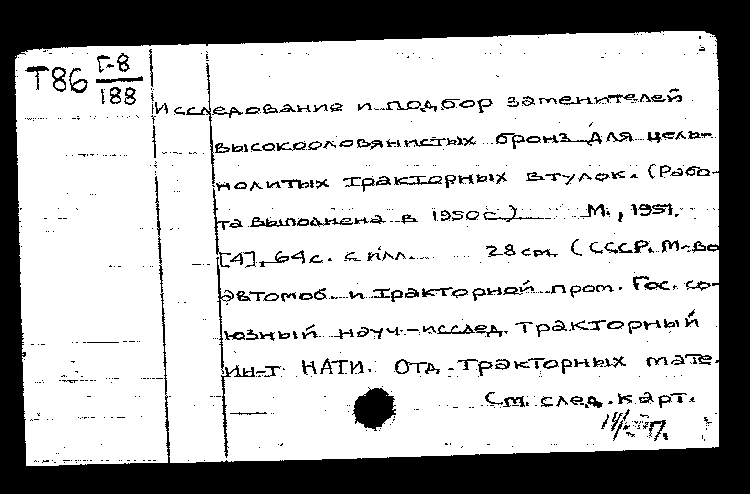 Т86 Г-8
188
Исследование и подбор заменителей
высокооловянистых бронз для цель-
нолитых тракторных втулок. (Рабо-
та выполнена в 1950 г.) М., 1951.
[4], 64 с. с илл. 28 см. (СССР. М-во
автомоб. и тракторной пром. Гос. со-
юзный науч.-исслед. тракторный
ин-т НАТИ. Отд. тракторных мате-
См. след. карт.